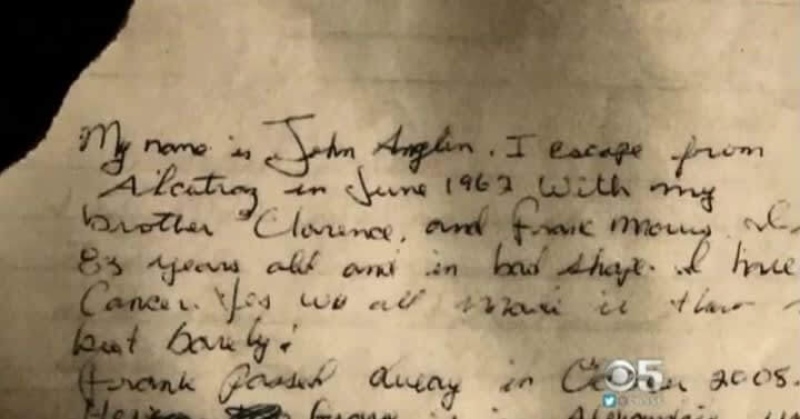 My name is John Anglin. I escape from
Alcatraz in June 1962 With my
brother Clarence, and Frank Morris
83 years old and in bad shape. I have
Cancer. Yes we all made it
but barely!
Frank passed away in 2008.
5